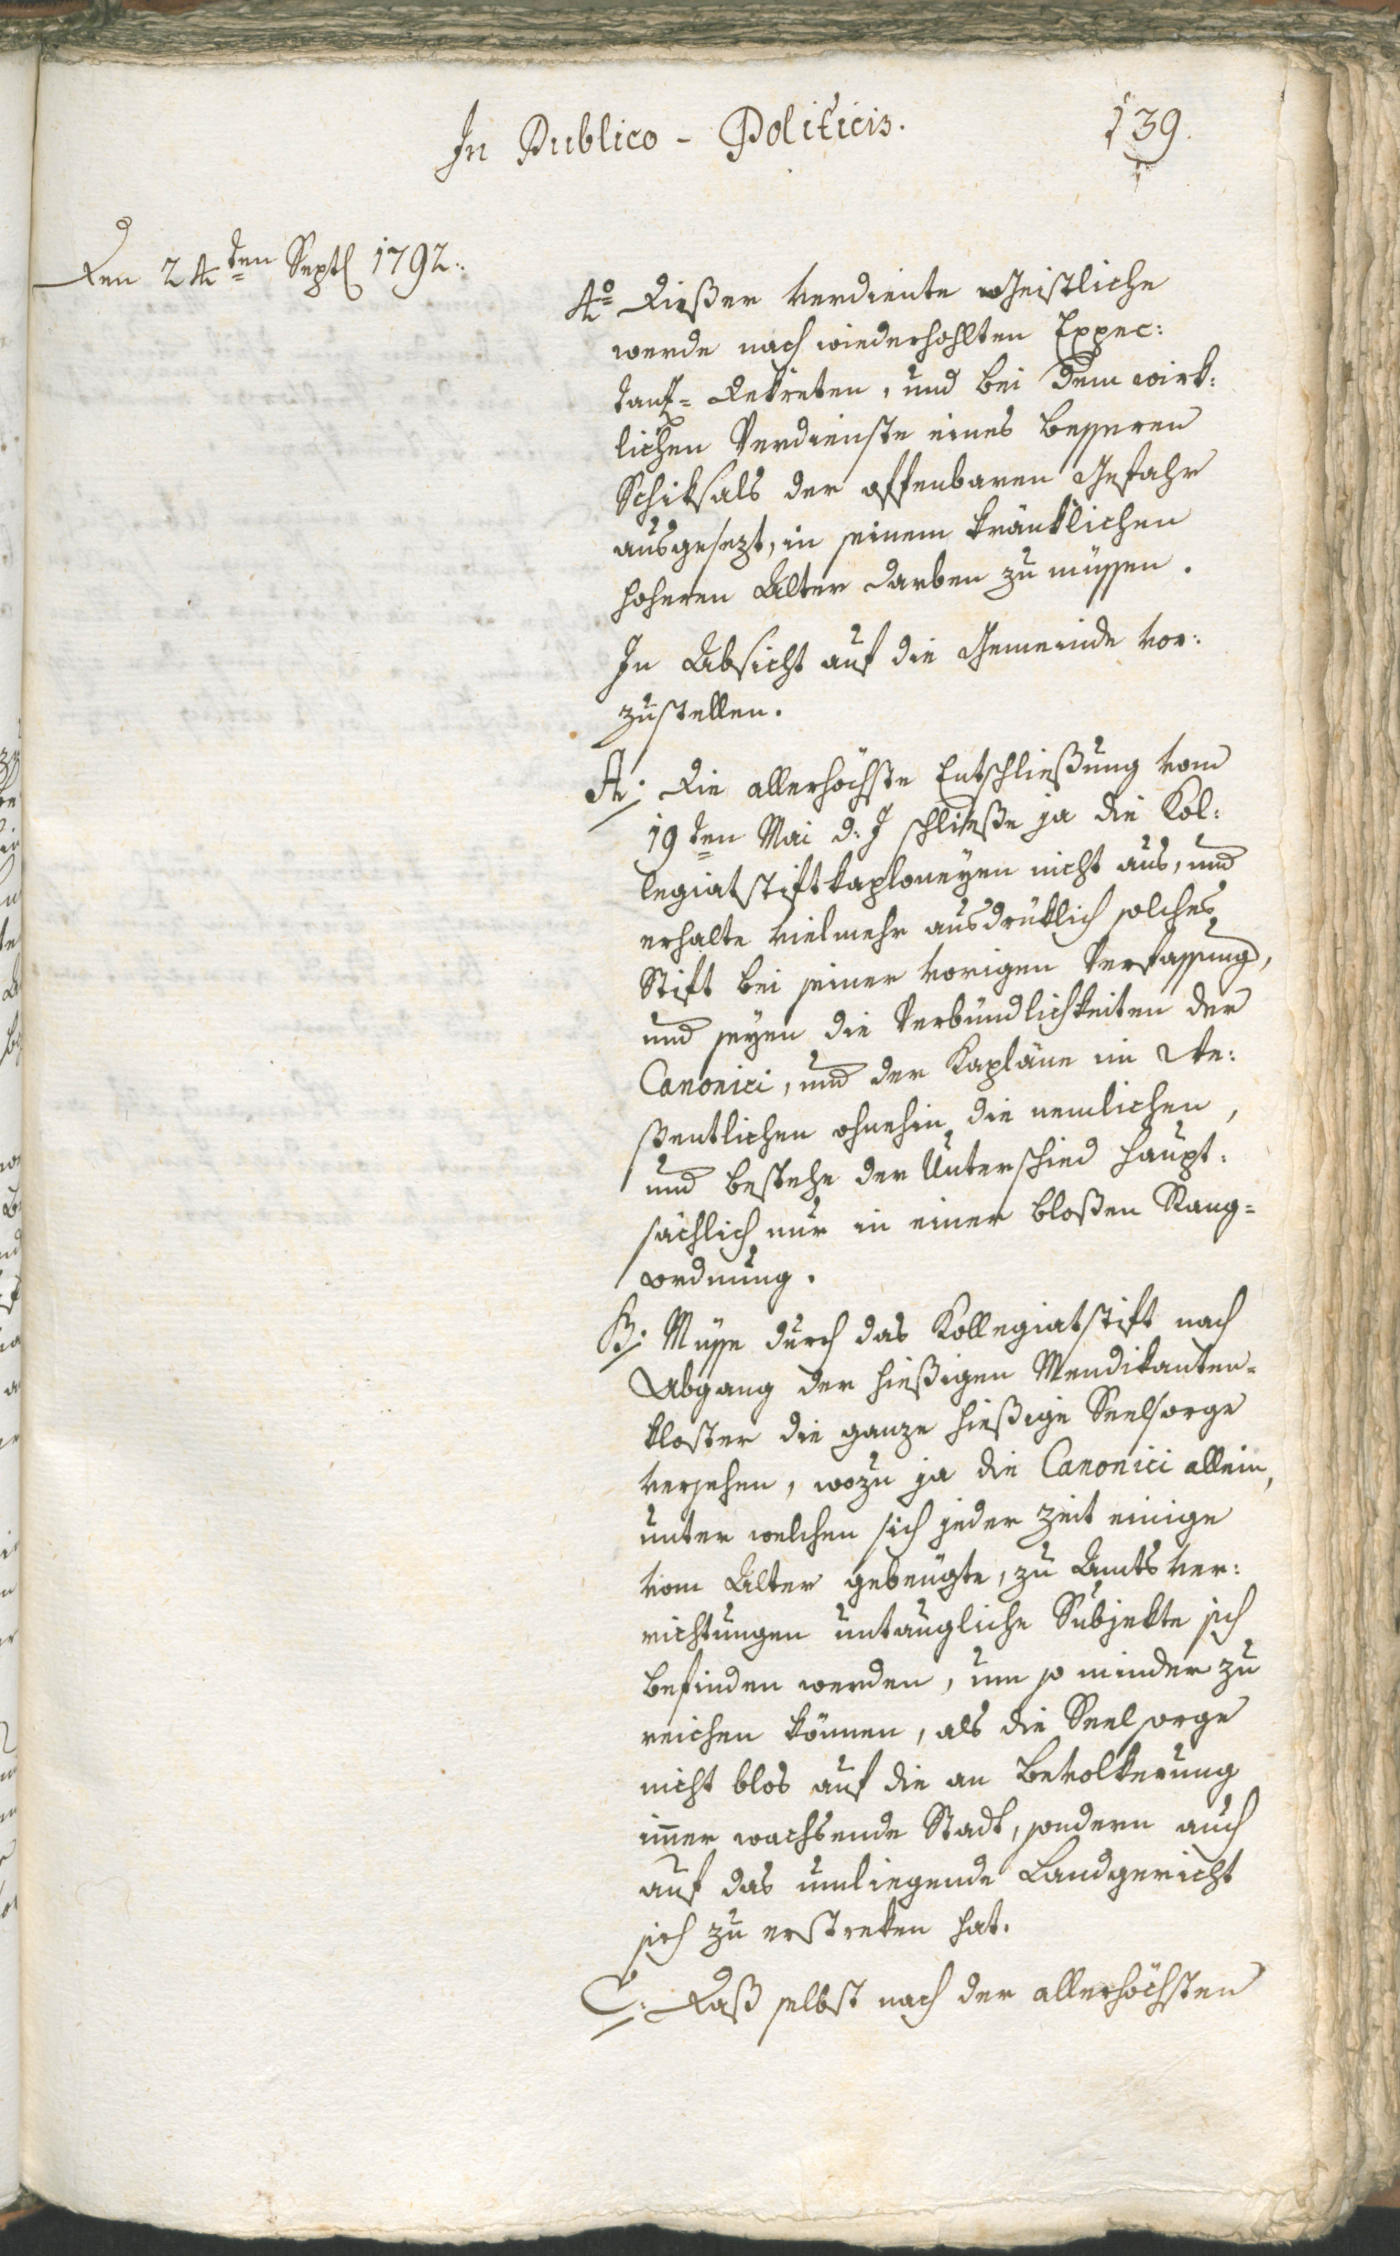 In Publico - Politicis.
139.
Den 24ten Septb 1792.
4o Dießer verdiente Geistliche
werde nach wiederhohlten Expec:
tanz- Dekreten, und bei dem wirk:
lichen Verdienste eines besseren
Schiksals der offenbaren Gefahr
ausgesezt, in seinem kränklichen
hoheren Alter darben zu müssen.
In Absicht auf die Gemeinde vor:
zustellen.
A: Die allerhöchste Entschließung vom
19ten Mai d: J schließe ja die Kol:
legiatstiftkaploneyen nicht aus, und
erhalte vielmehr ausdrüklich solches
Stift bei seiner vorigen Verfassung,
und seyen die Verbündlichkeiten der
Canonici, und der Kapläne im We:
ßentlichen ohnehin die nemlichen,
und bestehe der Unterschied haupt:
sächlich nur in einer bloßen Rang-
ordnung.
B: Müsse durch das Kollegiatstift nach
Abgang der hießigen Mendikanten-
kloster die ganze hießige Seelsorge
versehen, wozu ja die Canonici allein,
unter welchen sich jeder Zeit einige
vom Alter gebeugte, zu Amts ver:
richtungen untaugliche Subjekte sich
befinden werden, um so minder zu
reichen können, als die Seelsorge
nicht blos auf die an Bevolkerung
im̅er wachsende Stadt, sondern auch
auf das umliegende Landgericht
sich zu erstreken hat.
C: Daß selbst nach der allerhöchsten